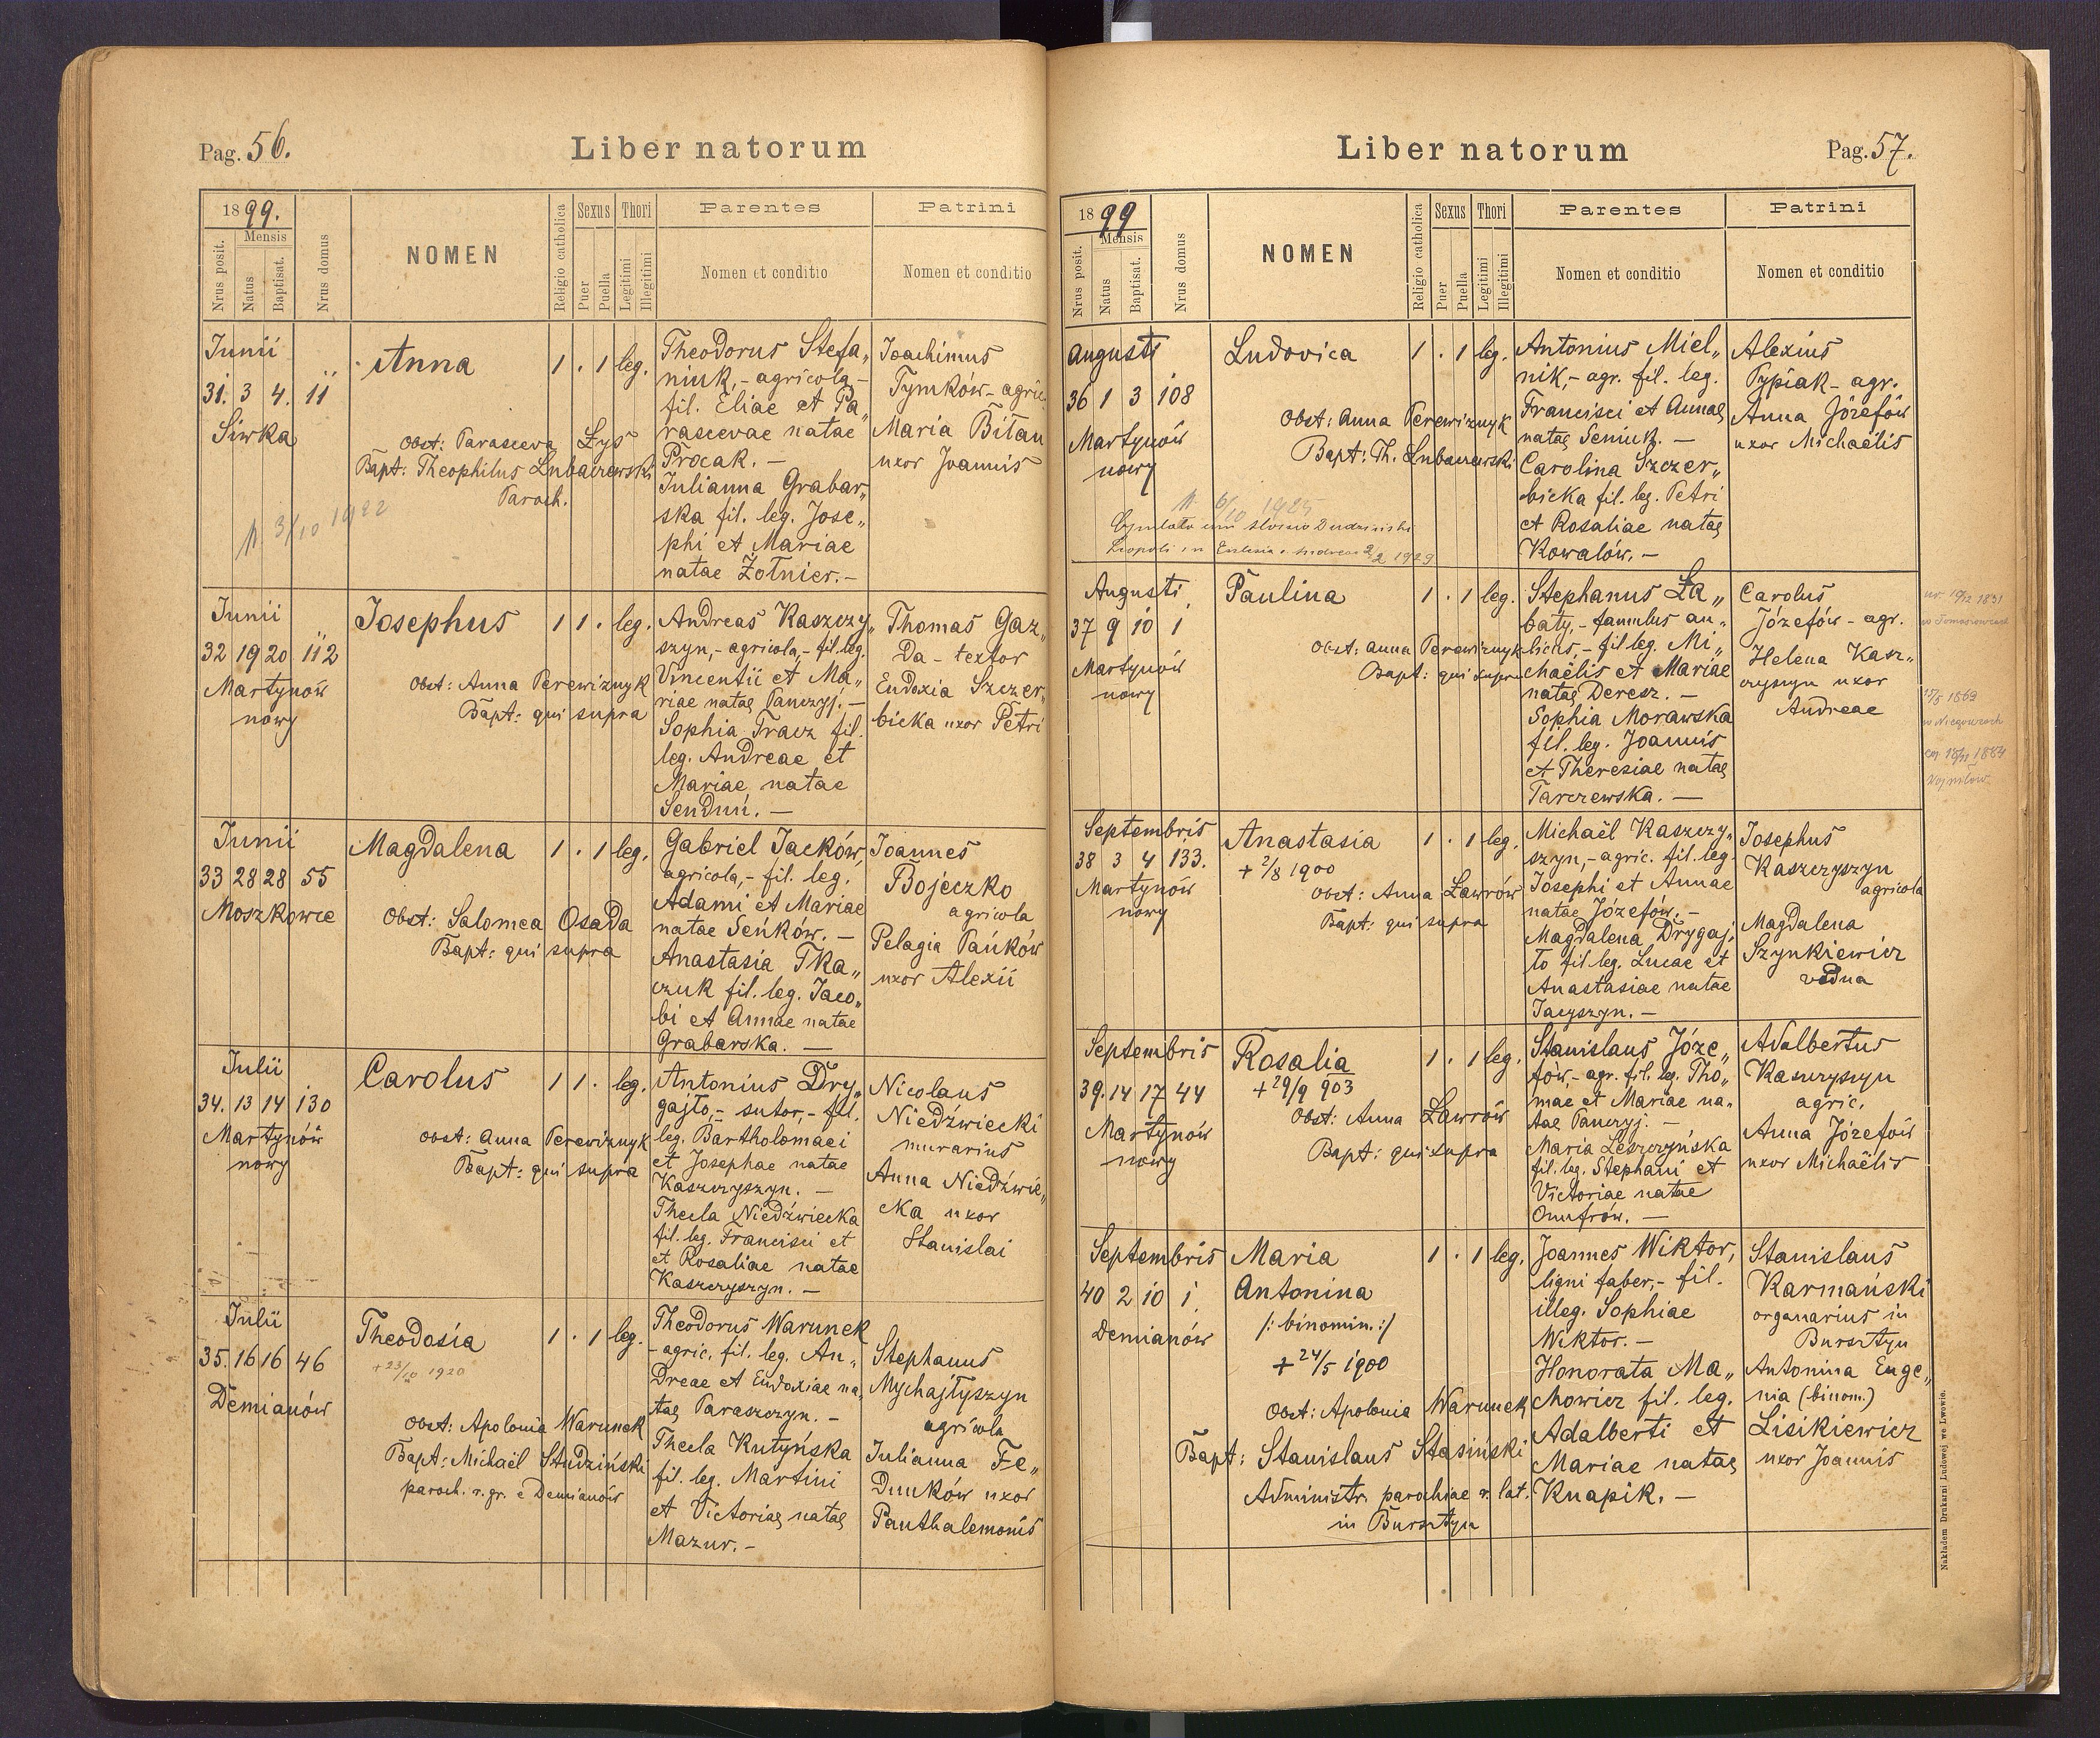 Pag. 56.
Liber natorum
1899.
Mensis
Nrus posit.
Natus
Baptisat.
Nrus domus
NOMEN
Religio catholica
Sexus
Puer
Puella
Thori
Legitimi
Illegitimi
Parentes
Nomen et conditio
Patrini
Nomen et conditio
Junii
31. 3 4. 11
Siwka
Anna
1 . 1 leg.
Obst: Parasceva Łyś
Bapt: Theophilus Lubaczewski
Paroch.
3/10 1922
Theodorus Stefa„
niuk,- agricola,-
fil. Eliae et Pa„
rascevae natae
Procak. -
Julianna Grabar„
ska fil. leg. Jose„
phi et Mariae
natae Żołnier.-
Joachimus
Tymków - agric.
Maria Bitan
uxor Joannis
Junii
32 19 20 112
Martynów
nowy
Josephus
1 1 . leg.
Obst: Anna Perewiznyk
Bapt: qui supra
Andreas Kaszczy„
szyn,- agricola,- fil. leg.
Vincentii et Ma„
riae natae Panczyj. -
Sophia Tracz fil.
leg. Andreae et
Mariae natae
Senduń. -
Thomas Gaz„
da - textor
Eudoxia Szczer„
bicka uxor Petri
Junii
33 28 28 55
Moszkowce
Magdalena
1 . 1 leg.
Obst: Salomea Osada
Bapt: qui supra
Gabriel Jacków,
agricola,- fil. leg.
Adami et Mariae
natae Seńków. -
Anastasia Tka„
czuk fil. leg. Jaco„
bi et Annae natae
Grabarska. -
Joannes
Bojeczko
agricola
Pelagia Pańków
uxor Alexii
Julii
34. 13 14 130
Martynów
nowy
Carolus
1 1 . leg.
Obst: Anna Perewiznyk
Bapt: qui supra
Antonius Dry„
gajło,- sutor,- fil.
leg. Bartholomaei
et Josephae natae
Kaszczyszyn. -
Thecla Niedźwiecka
fil. leg. Francisci et
et Rosaliae natae
Kaszczyszyn. -
Nicolaus
Niedźwiecki
murarius
Anna Niedźwie„
cka uxor
Stanislai
Julii
35. 16 16 46
Demianów
Theodosia
+ 23/10 1920
1 . 1 leg.
Obst: Apolonia Warunek
Bapt: Michaël Studziński
paroch. r. gr. e Demianów
Theodorus Warunek
- agric. fil. leg. An„
dreae et Eudoxiae na„
tae Paraszczyn. -
Thecla Kutyńska
fil. leg. Martini
et Victoriae natae
Mazur. -
Stephanus
Mychajłyszyn
agricola
Julianna Fe„
dunków uxor
Panthalemonis
Liber natorum
Pag. 57.
1899
Mensis
Nrus posit.
Natus
Baptisat.
Nrus domus
NOMEN
Religio catholica
Sexus
Puer
Puella
Thori
Legitimi
Illegitimi
Parentes
Nomen et conditio
Patrini
Nomen et conditio
Augusti
36 1 3 108
Martynów
nowy
Ludovica
1 . 1 leg.
Obst: Anna Perewiznyk
Bapt: Th. Lubaczewski
6/10 1925
2/2 1929
Antonius Miel„
nik,- agr. fil. leg.
Francisci et Annae
natae Seniuk. -
Carolina Szczer„
bicka fil. leg. Petri
et Rosaliae natae
Kowalów. -
Alexius
Pypiak - agr.
Anna Józefów
uxor Michaëlis
Augusti
37 9 10 1
Martynów
nowy
Paulina
1 . 1 leg.
Obst: Anna Perewiznyk
Bapt: qui supra
Stephanus Ła„
baty,- famulus au„
licus,- fil leg. Mi„
chaëlis et Mariae
natae Deresz. -
Sophia Morawska
fil. leg. Joannis
et Theresiae natae
Tarczewska. -
Carolus
Józefów - agr.
Helena Kasz„
czyszyn uxor
Andreae
Septembris
38 3 4 133.
Martynów
nowy
Anastasia
+ 2/8 1900
1 . 1 leg.
Obst: Anna Ławrów
Bapt: qui supra
Michaël Kaszczy„
szyn,- agric. fil. leg.
Josephi et Annae
natae Józefów. -
Magdalena Drygaj„
ło fil leg. Lucae et
Anastasiae natae
Jacyszyn. -
Josephus
Kaszczyszyn
agricola
Magdalena
Szynkiewicz
vidua
Septembris
39. 14 17 44
Martynów
nowy
Rosalia
+ 29/9 903
1 . 1 leg.
Obst: Anna Ławrów
Bapt: qui supra
Stanislaus Józe„
fów,- agr. fil. leg. Tho„
mae et Mariae na„
tae Panczyj. -
Maria Leszczyńska
fil. leg. Stephani et
Victoriae natae
Onufrów. -
Adalbertus
Kaszczyszyn
agric.
Anna Józefów
uxor Michaëlis
Septembris
40 2 10 1
Demianów
Maria
Antonina
/: binomin. :/
+ 24/5 1900
1 . 1 leg.
Obst: Apolonia Warunek
Bapt: Stanislaus Stasiński
Administr. parochiae r. lat.
in Bursztyn
Joannes Wiktor,
ligni faber,- fil.
illeg. Sophiae
Wiktor. -
Honorata Ma„
chowicz fil. leg.
Adalberti et
Mariae natae
Knapik. -
Stanislaus
Karmański
organarius in
Bursztyn
Antonina Euge„
nia (binom.)
Lisikiewicz
uxor Joannis
Nakładem Drukarni Ludowej we Lwowie.